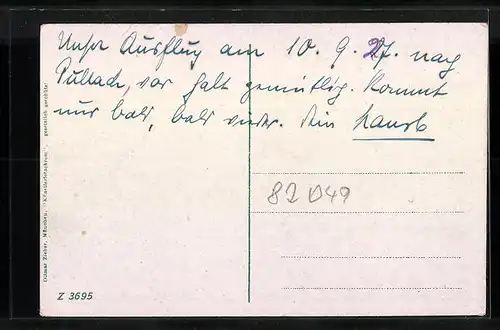 Unser Ausflug am 10. 9. 27. nach
Pullach, war halt gemütlich. Kommt
nur bald, bald wieder.
82 D49
Z 3695
Ottmar Zieher, München. "Künstlerfotochrom". gesetzlich geschützt